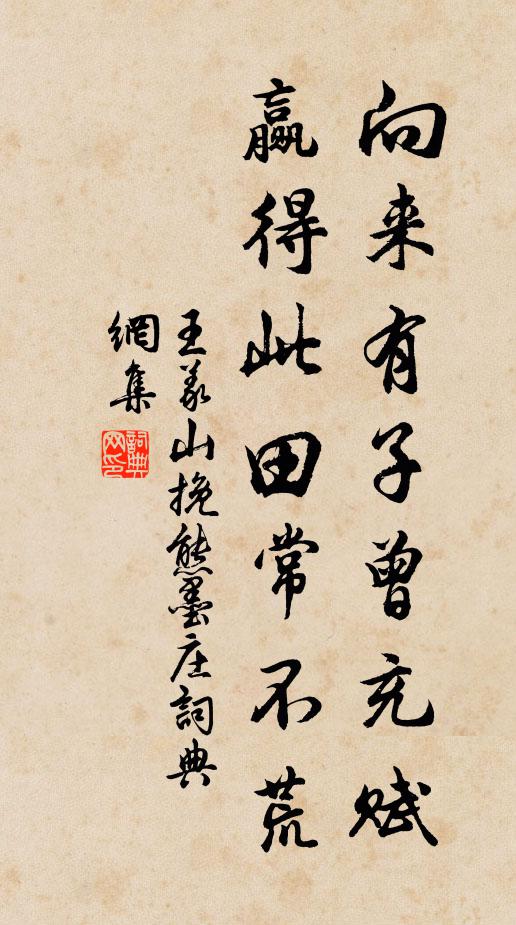 向来有子曾充赋
赢得此田常不荒
王义山挽熊墨庄詞典
網集
詞典网印